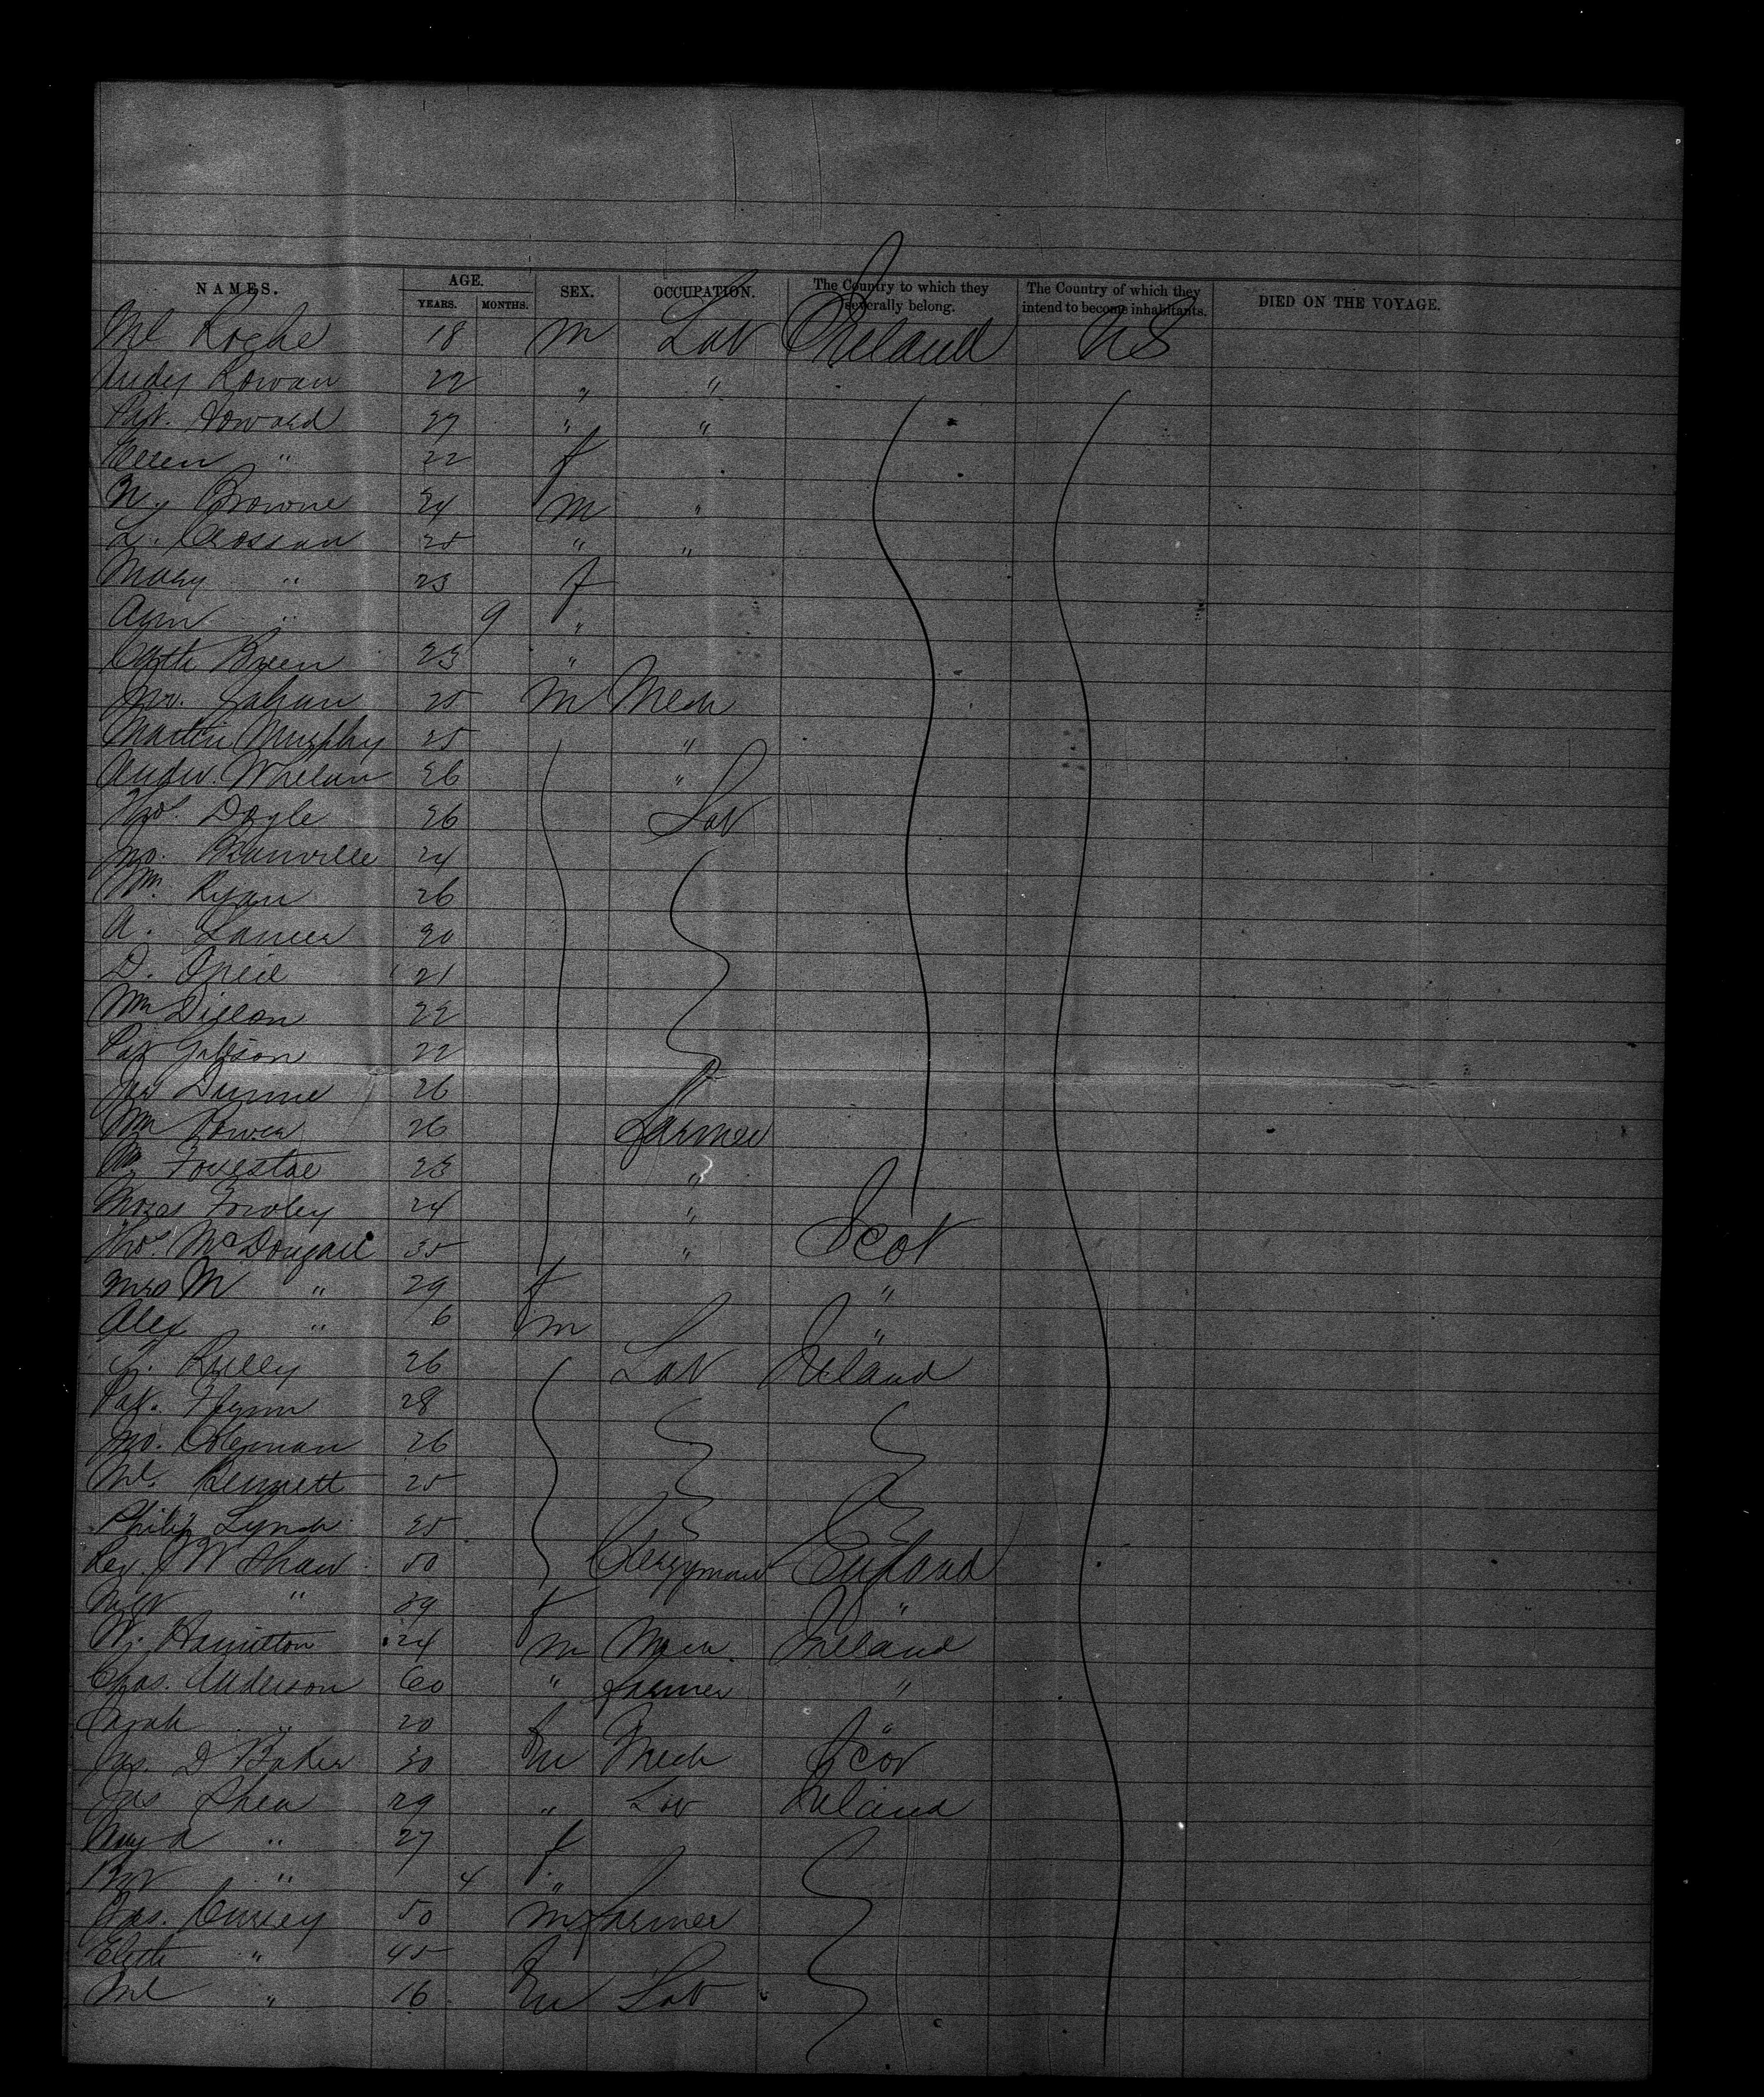 NAMES. AGE. SEX. OCCUPATION. The Country to which they severally belong. The Country of which they intend to become inhabitants. DIED ON THE VOYAGE.
YEARS. MONTHS.
Ml Roche 18 m Lab Ireland US
Andy Rowan 22 " "
Pat. Howard 27 " "
Ellen " 22 f
Browne 24 m "
L. Crossan 25 " "
Mary " 23 f
Ann " 9 "
Cath Breen 23 "
Jno. Gahan 25 m Mech
Martin Murphy 25 "
Andw. Whelan 26 "
Thos. Doyle 26 Lab
Jno. Banville 24
Wm. Ryan 26
A. 20
D. Oneil 21
Wm Dillon 22
Pat Gibson 22
Dunne 26
Wm Power 26 Farmer
23 "
Moses Fowley 24 "
Thos McDougall 35 " Scot
Mrs M " 29 f "
Alex " 6 m "
Rielly 26 Lab Ireland
Pat. Flynn 28
Jno. Coleman 26
Ml. Bennett 25
Philip Lynch 25
Rev J W Shaw 50 Clergyman England
" 39 f "
W. Hamilton 24 m Mech. Ireland
Chas. Anderson 60 " Farmer "
Sarah " 20 f "
Jas. D Baker 30 m Mech Scot
Jas Shea 29 " Lab Ireland
" 27 f
" 4 "
Jas. Curley 50 m Farmer
" 45 f
Ml " 16 m Lab